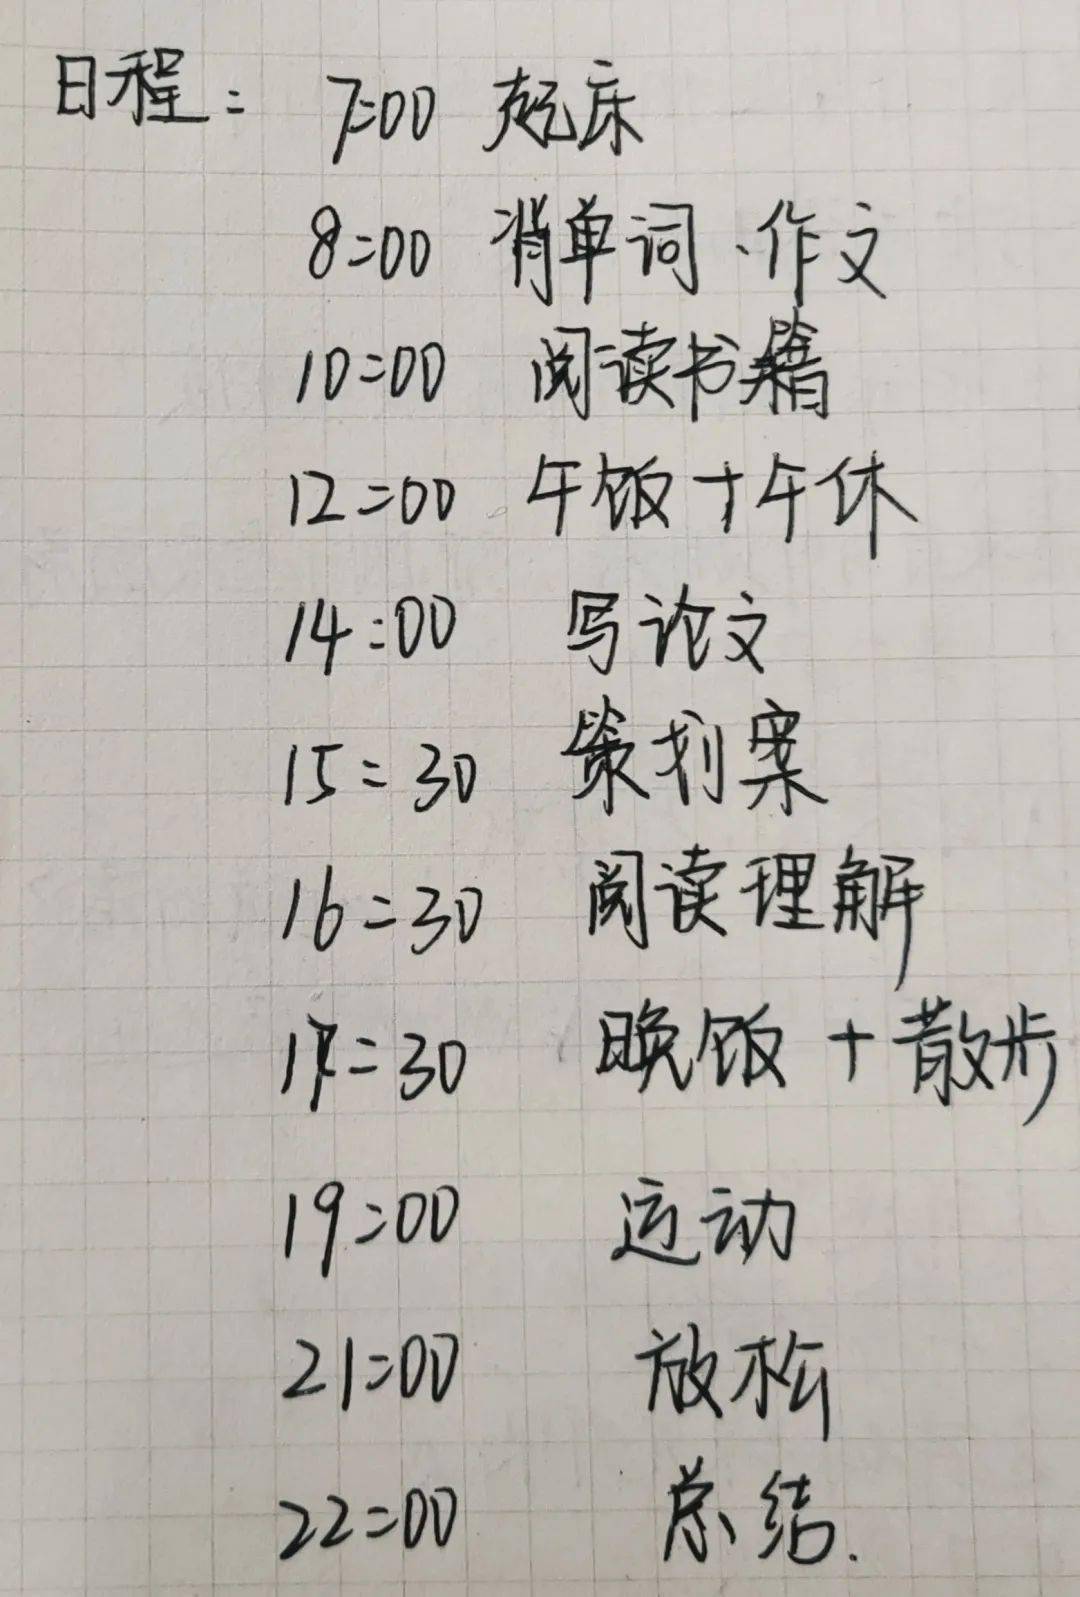 日程: 7:00 起床
8:00 背单词、作文
10:00 阅读书籍
12:00 午饭+午休
14:00 写论文
15:30 策划案
16:30 阅读理解
17:30 晚饭+散步
19:00 运动
21:00 放松
22:00 总结.